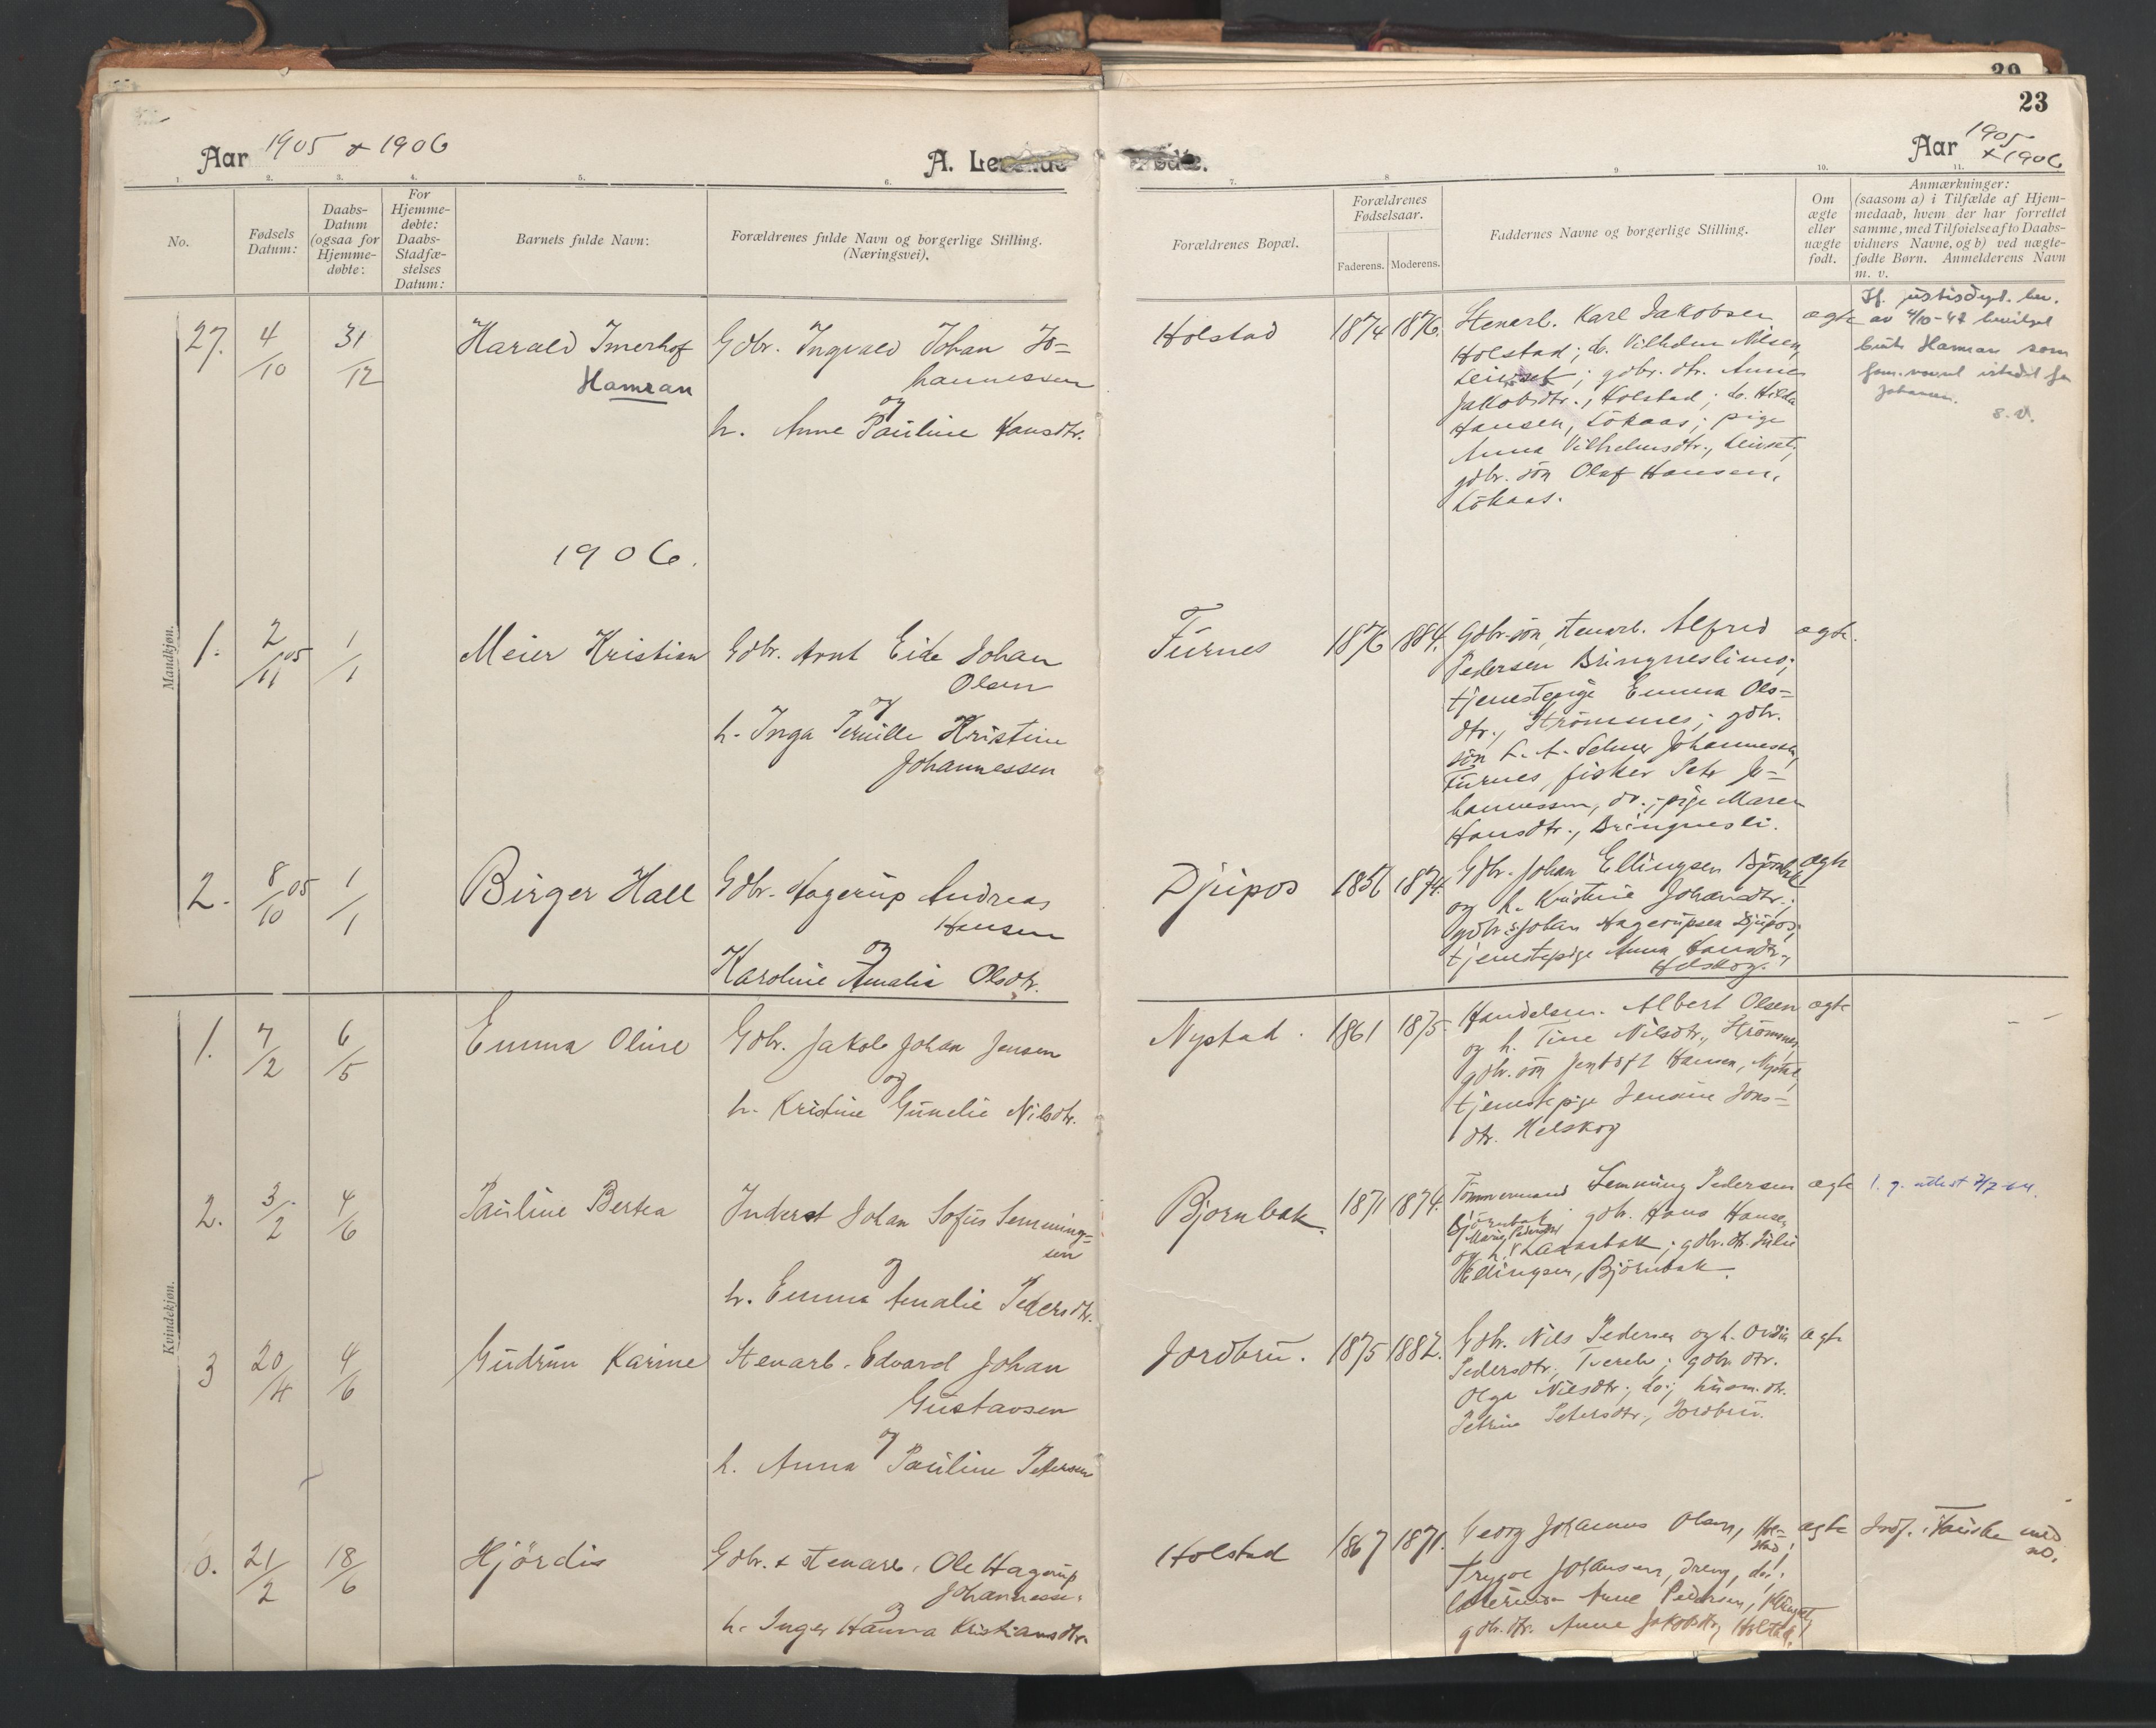 23
Aar 1905 & 1906
A. Levende
fødte.
Aar 1905 & 1906
1. 2. 3. 4. 5. 6. 7. 8. 9. 10. 11.
No.
Fødsels Datum:
Daabs-Datum (ogsaa for Hjemme-døbte:
For Hjemme-døbte: Daabs-Stadfæ-stelses Datum:
Barnets fulde Navn:
Forældrenes fulde Navn og borgerlige Stilling.
(Næringsvei).
Forældrenes Bopæl.
Forældrenes Fødselsaar.
Faderens. Moderens.
Faddernes Navne og borgerlige Stilling.
Om ægte eller uægte født.
Anmærkninger:
(saasom a) i Tilfælde af Hjem-
medaab, hvem der har forrettet
samme, med Tilføielse af to Daabs-
vidners Navne, og b) ved uægte-
fødte Børn. Anmelderens Navn
m. v.
Mandkjøn.
27. 4/10 31/12 Harald Imerhof
Hamran
Gdbr. Ingvald Johan Jo-
hannessen
og
h. Anne Pauline Hansdtr.
Holstad 1874 1876.
Stenarb. Karl Jakobsen
Holstad; do. Vilhelm Nilsen,
Leivset; gdbr. dtr. Anne
Jakobsdtr., Holstad; do. Hilda
Hansen, Lökaas; pige
Anna Vilhelmsdtr., Leivset;
gdbr. sön Olaf Hansen,
Lökaas.
ægte
If. justisdept. bev.
av 4/10-47 bevilget
bruke Hamran som
fam.navn istedet for
Johansen.
S.V.
1906.
1. 2/11 05 1/1 Meier Kristian
Gdbr. Arnt Eide Johan
Olsen
og
h. Inga Pernille Kristine
Johannessen
Furnes 1876 1884.
Gdbr. sön, stenarb. Alfred
Pedersen Bringneslimo;
tjenestepige Emma Ols-
dtr., Strömsnes; gdbr.
sön L. A. Selmer Johannessen,
Furnes, fisker Peter Jo-
hannessen, do.; pige Maren
Hansdtr., Bringnesli.
ægte.
2. 8/10 05 1/1 Birger Hall
Gdbr. Hagerup Andreas
Hansen
og
Karoline Amalia Olsdtr.
Djupos 1856 1874.
Gdbr. Johan Ellingsen Björnbak
og h. Kristine Johansdtr.;
gdbr. s. Johan Hagerupsen Djupos;
tjenestepige Anna Hansdtr.,
Helskog.
ægte
Kvindekjøn.
1. 7/2 6/5 Emma Oline
Gdbr. Jakob Johan Jensen
og
h. Kristine Gunelie Nilsdtr.
Nystad. 1861 1875.
Handelsm. Albert Olsen
og h. Tine Nilsdtr., Strömsnes,
gdbr. sön Jentoft Hansen, Nystad,
tjenestepige Jensine Jons-
dtr. Helskog
ægte
2. 3/2 4/6 Pauline Bertea
Inderst Johan Sofus Semming-
sen
og
h. Emma Amalie Pedersdtr.
Bjornbak. 1871 1874.
Tömmermand Semming Pedersen
Björnbak; gdbr. Hans Hansen
og h. Marie Pedersdtr Laxaabak; gdbr. dtr. Julie
Ellingsen, Björnbak.
ægte
3 20/4 4/6 Gudrun Karine
Stenarb. Edvard Johan
Gustavsen
og
h. Anna Pauline Petersen
Jordbru. 1875 1882.
Gdbr. Nils Pedersen og h. Ovidia
Pedersdtr., Tveraa; gdbr. dtr.
Olga Nilsdtr., do.; husm. dtr.
Petrine Petersdtr., Jordbru.
ægte
0. 21/2 18/6 Hjördis
Gdbr. & stenarb. Ole Hagerup
Johannessen
og
h. Inger Hanna Kristiansdtr.
Holstad 1867 1871.
Georg Johannes Olsen, Hol-
stad;
Trygve Johansen, dreng, do.;
Anne Pedersen,
gdbr. dtr. Anne Jakobsdtr, Holstad.
ægte
Indf. i Fauske med
no.